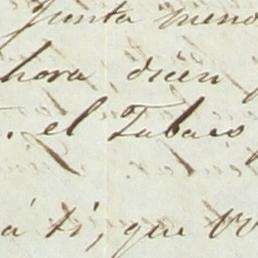 Junta meno
hora dicen
. el Tabaco
á ti, que